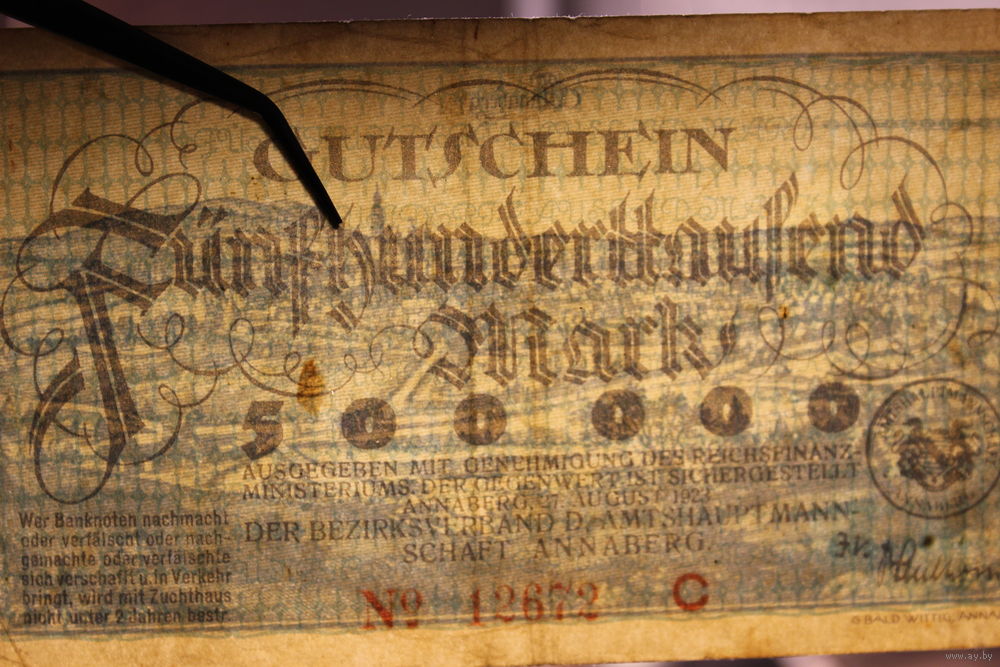 GUTSCHEIN
Fünfhunderttausend
Mark
500000
AUSGEGEBEN MIT GENEHMIGUNG DES REICHSFINANZ-
MINISTERIUMS. DER GEGENWERT IST SICHERGESTELLT
ANNABERG, 27. AUGUST 1923
DER BEZIRKSVERBAND D. AMTSHAUPTMANN-
SCHAFT ANNABERG.
Wer Banknoten nachmacht
oder verfälscht oder nach-
gemachte oder verfälschte
sich verschafft u. in Verkehr
bringt, wird mit Zuchthaus
nicht unter 2 Jahren bestr.
No 12672 C
ANNABERG
www.ay.by